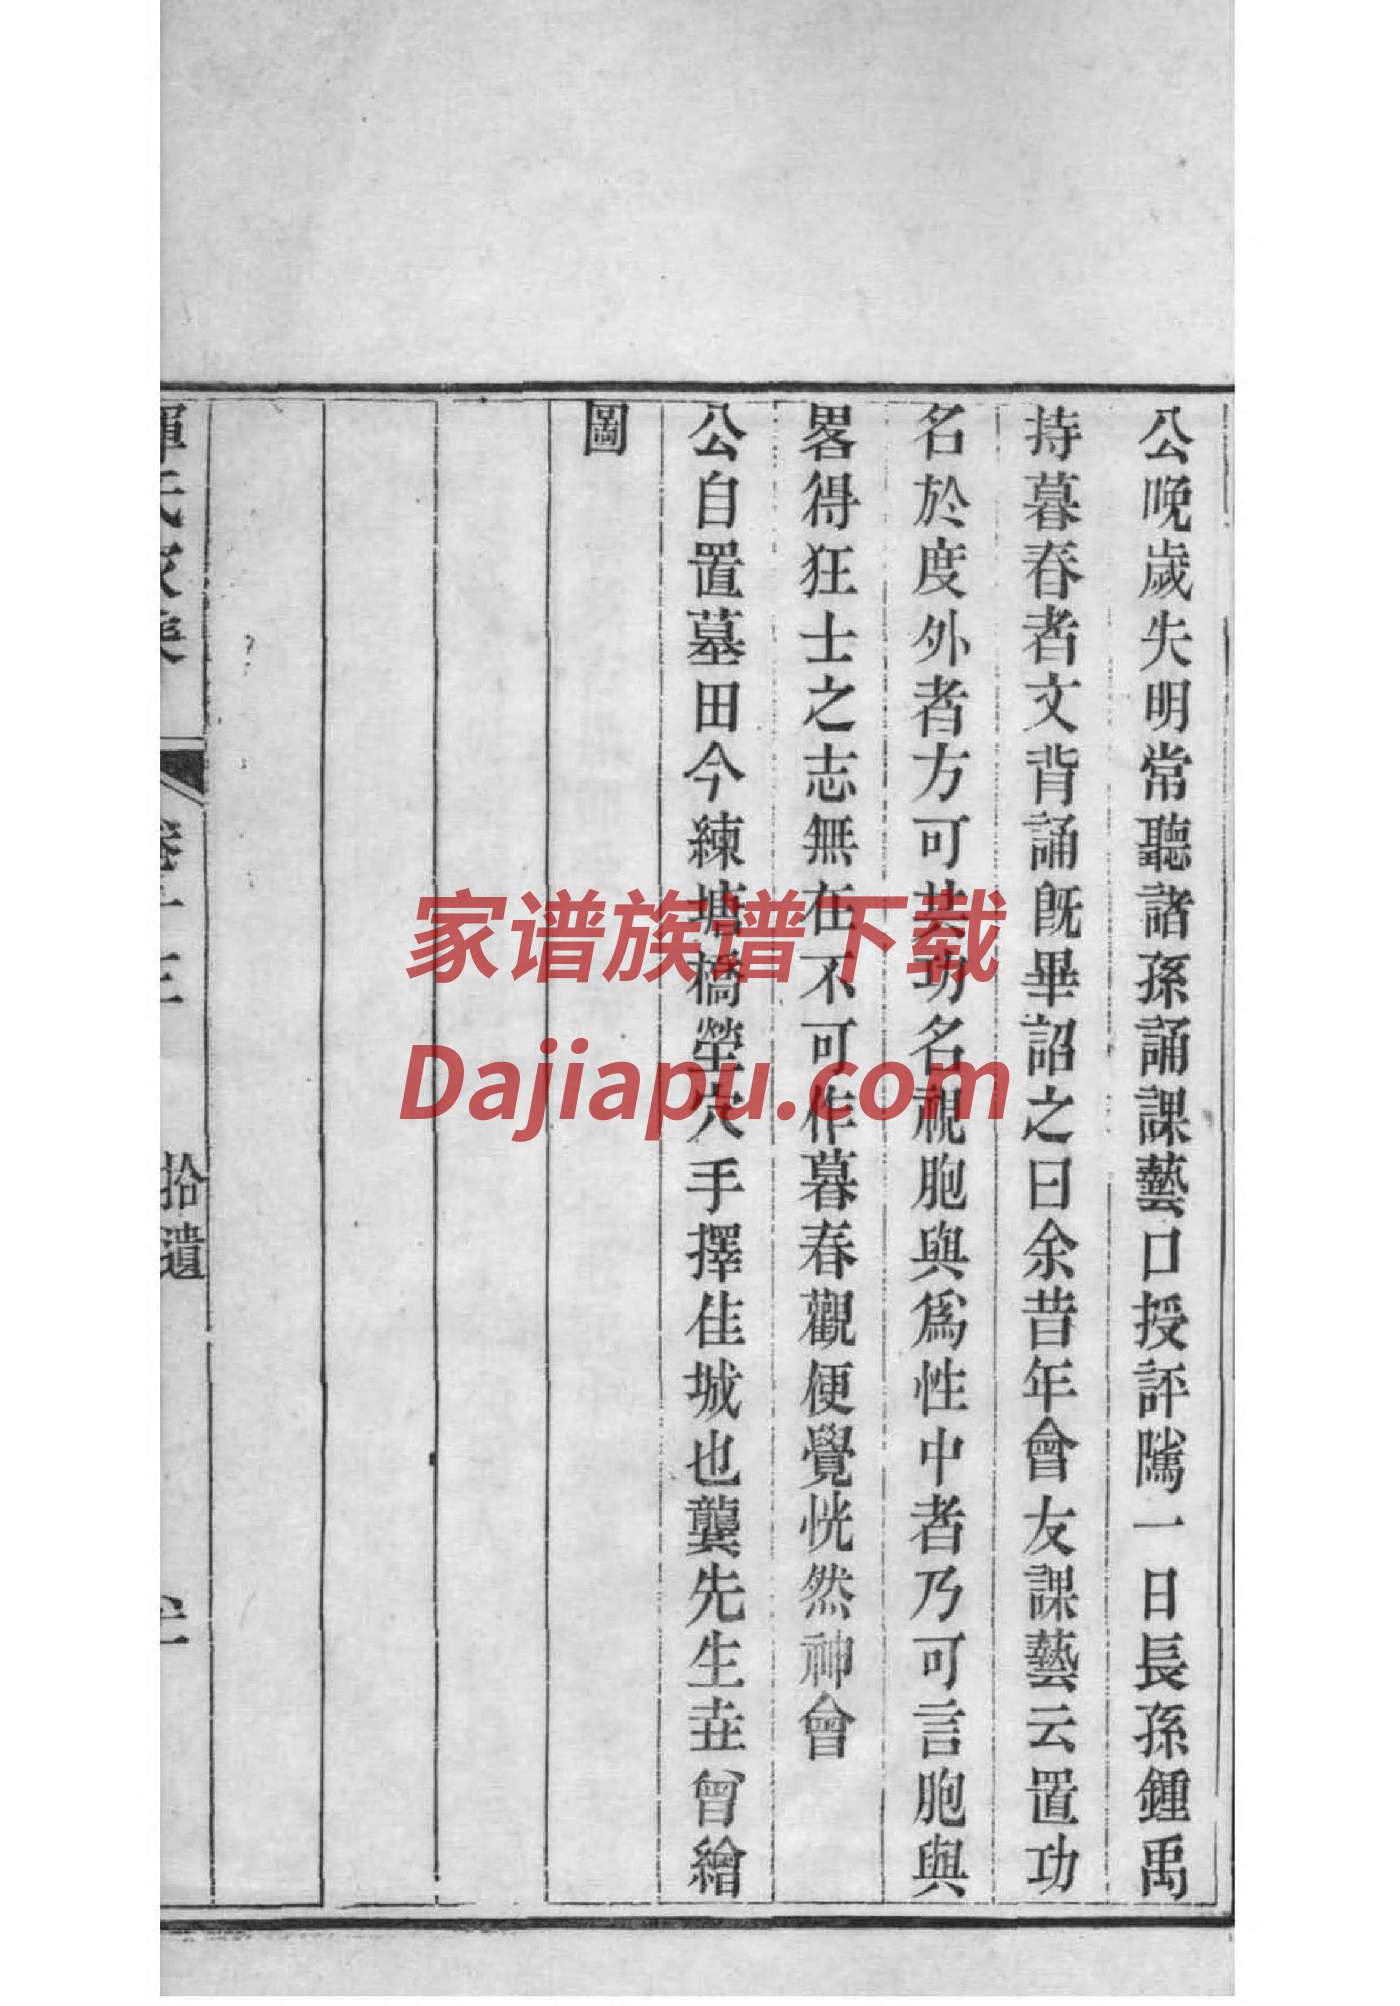 公晚歲失明常聽諸孫誦課藝口授評隲一日長孫鍾禹
持暮春者文背誦既畢詔之曰余昔年會友課藝云置功
名於度外者方可共功名視胞與爲性中者乃可言胞與
畧得狂士之志無在不可作暮春觀便覺恍然神會
公自置墓田今練塘橋塋穴手擇佳城也龔先生𡉄曾繪
圖
拾遺
家谱族谱下载
Dajiapu.com